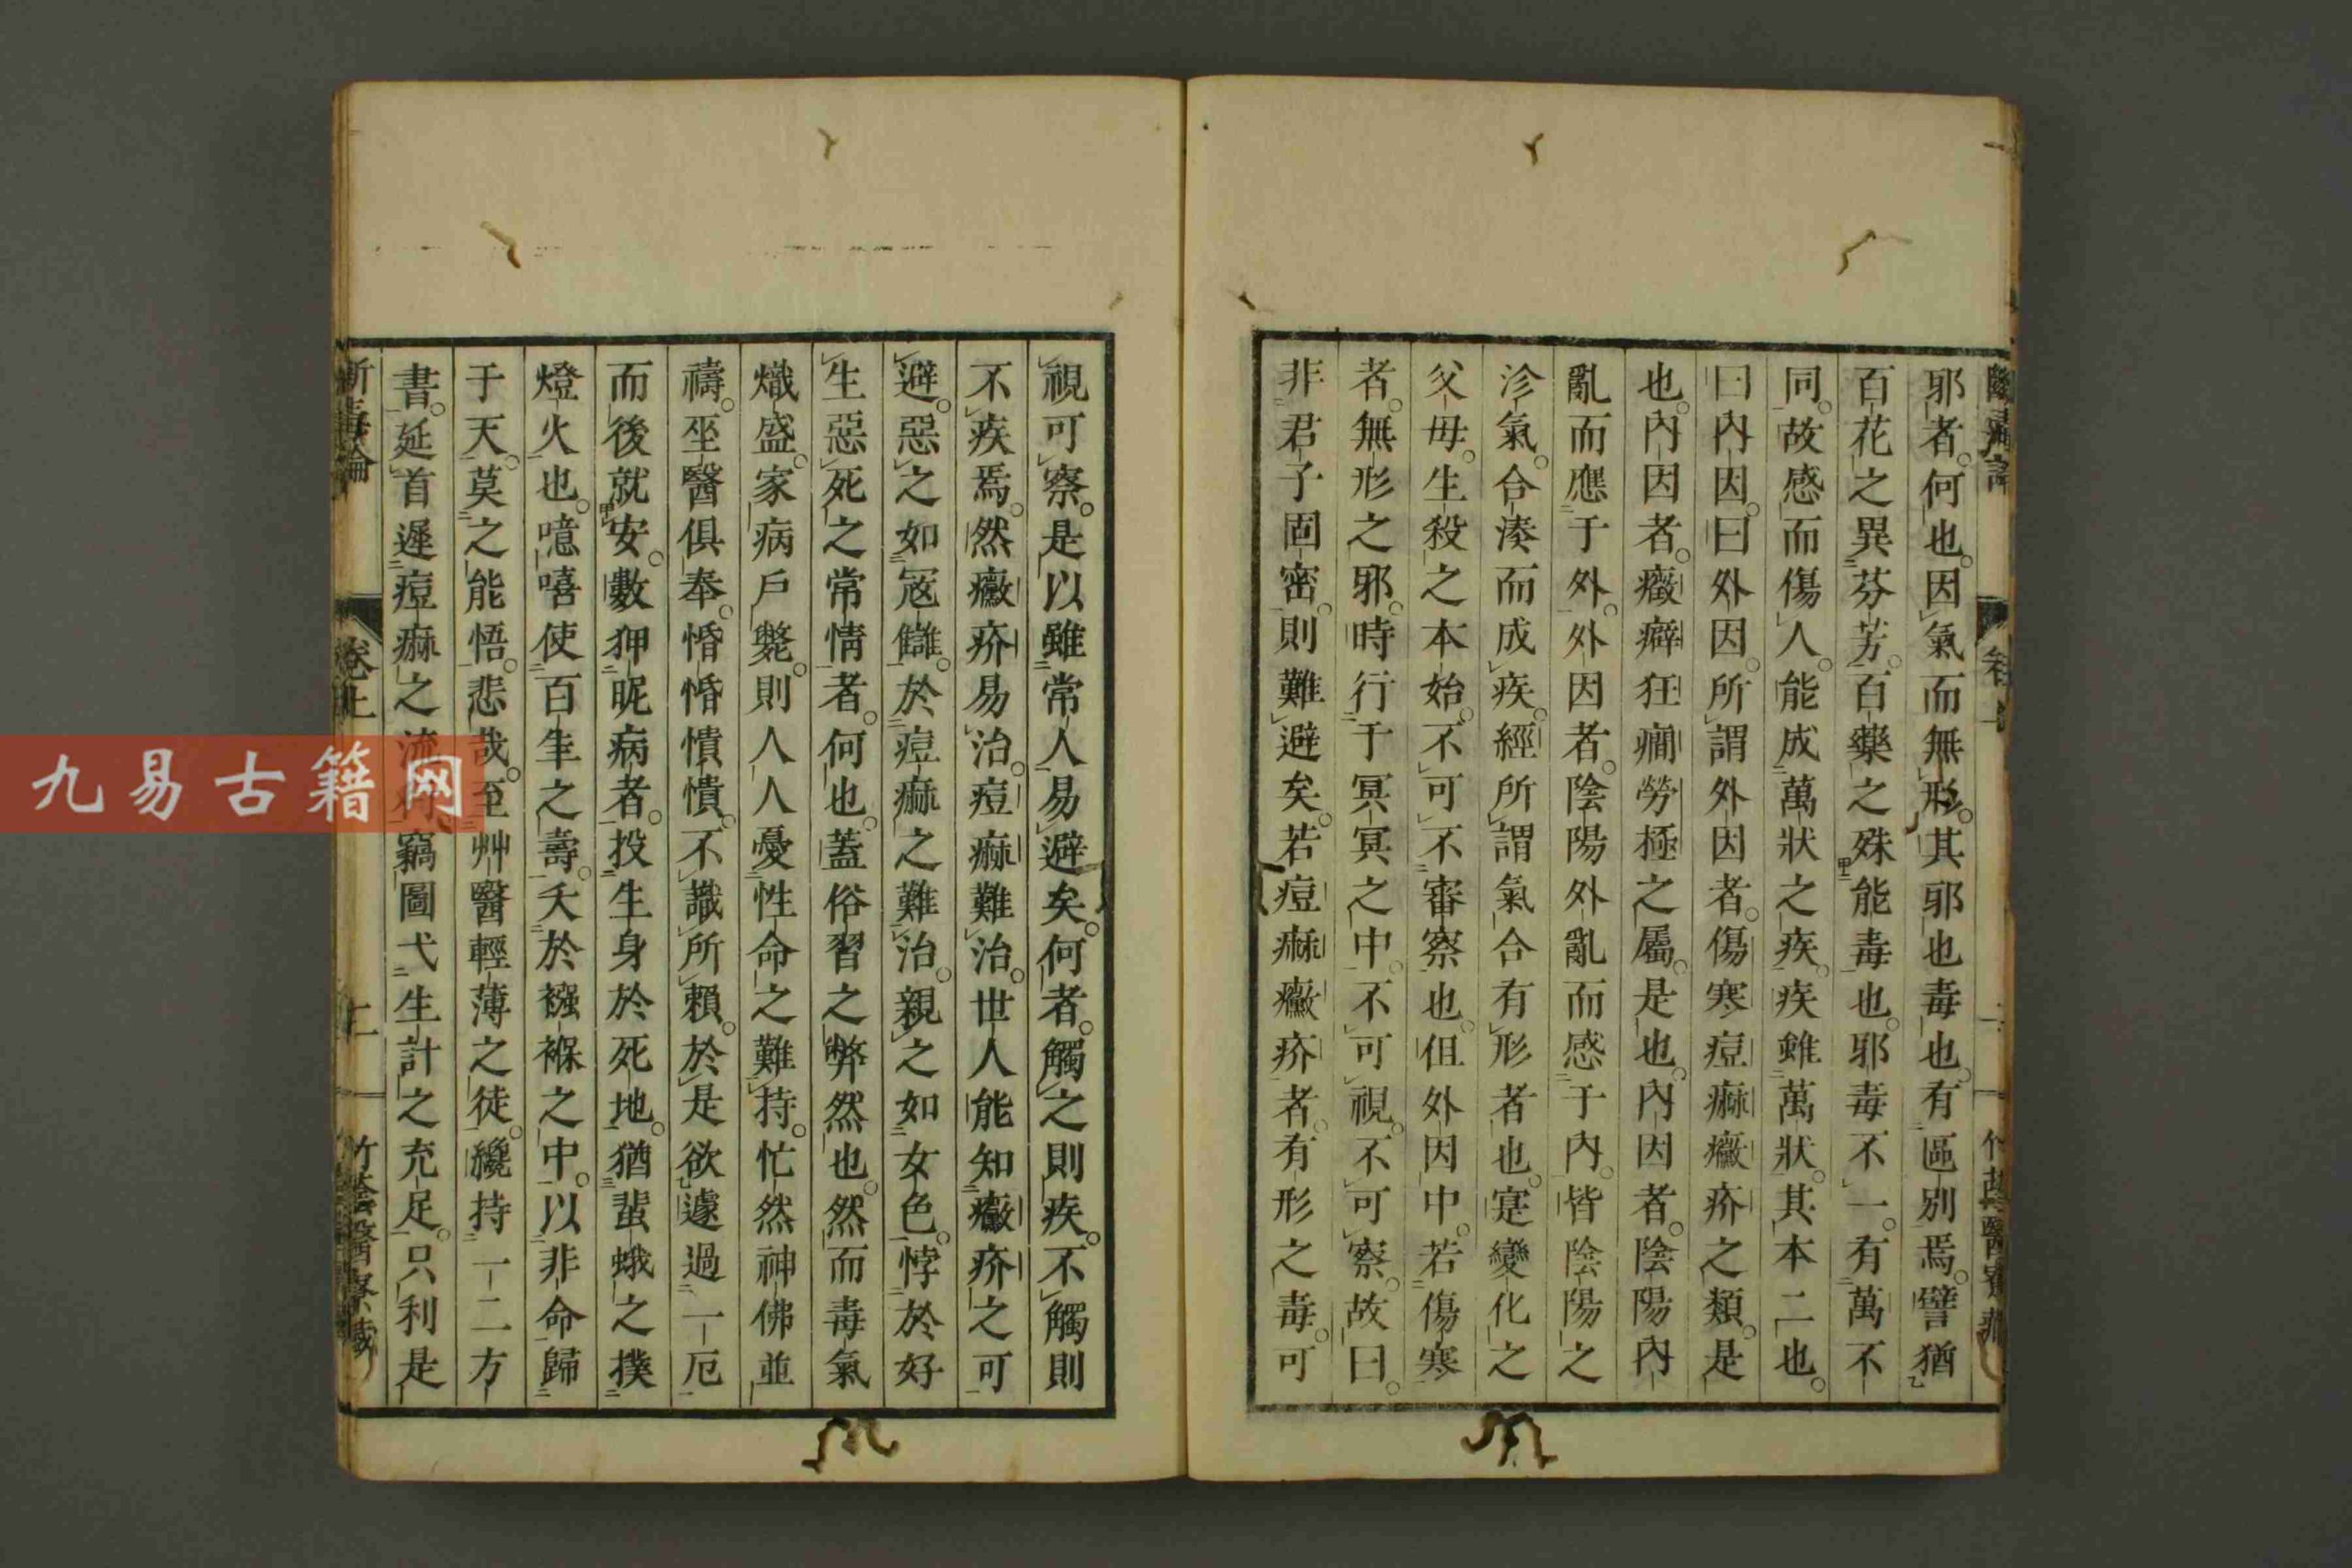 邪者何也因氣而無形其邪也毒也有區別焉譬猶
百花之異芬芳百藥之殊能毒也邪毒不一有萬不
同故感而傷人能成萬狀之疾疾雖萬狀其本二也
曰內因曰外因所謂外因者傷寒痘痲癥疥之類是
也內因者癥癖狂癇勞極之屬是也內因者陰陽內
亂而應于外外因者陰陽外亂而感于內皆陰陽之
沴氣合湊而成疾經所謂氣合有形者也寔變化之
父母生殺之本始不可不審察也但外因中若傷寒
者無形之邪時行于冥冥之中不可視不可察故曰
非君子固密則難避矣若痘痲癥疥者有形之毒可
視可察是以雖常人易避矣何者觸之則疾不觸則
不疾焉然癥疥易治痘痲難治世人能知癥疥之可
避惡之如寇讎於痘痲之難治親之如女色悖於好
生惡死之常情者何也蓋俗習之弊然也然而毒氣
熾盛家病戶斃則人人憂性命之難持忙然神佛並
禱坐醫俱奉惛惛憒憒不識所賴於是欲遽過一厄
而後就安數狎昵病者投生身於死地猶蜚蛾之撲
燈火也噫嘻使百年之壽夭於襁褓之中以非命歸
于天莫之能悟悲哉至艸醫輕薄之徒纔持一二方
書延首遲痘痲之流行竊圖弋生計之充足只利是
斷毒論
卷上
二
竹蔭醫寮藏
九易古籍网